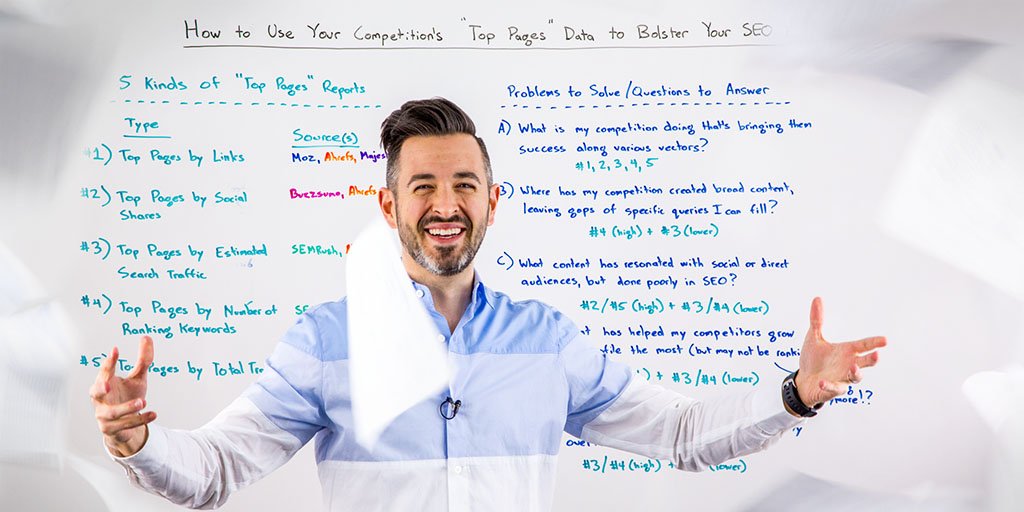 How to Use Your Competition's "Top Pages" Data to Bolster Your SEO
5 Kinds of "Top Pages" Reports
Type
Source(s)
#1) Top Pages by Links
Moz, Ahrefs, Majes
#2) Top Pages by Social
Shares
Buzzsumo, Ahrefs
#3) Top Pages by Estimated
Search Traffic
SEMRush,
#4) Top Pages by Number of
Ranking Keywords
SE
#5 To ages by Total Tr
Problems to Solve/Questions to Answer
A) What is my competition doing that's bringing them
success along various vectors?
#1, 2, 3, 4, 5
B) Where has my competition created broad content,
leaving gaps of specific queries I can fill?
#4 (high) + #3 (lower)
C) What content has resonated with social or direct
audiences, but done poorly in SEO?
#2/#5 (high) + #3/#4 (lower)
t has helped my competitors grow
file the most (but may not be ranki
) + #3/#4 (lower)
more!?
over
#3/#4 (high) (lower)